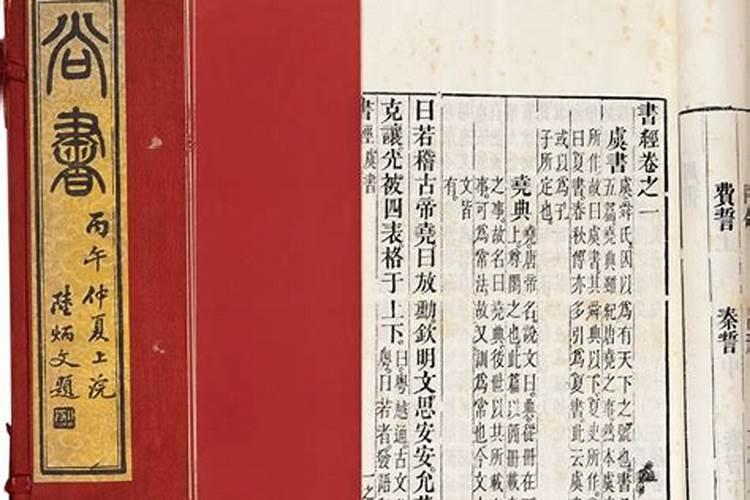 尚書
丙午仲夏上浣
陸炳文題
費誓
秦誓
書經卷之一
虞書
虞舜氏因以爲有天下之號也書
五篇堯典雖紀唐堯之事然本虞
所作故曰虞書其舜典以下夏史所作
曰夏書春秋傳亦多引爲夏書此云虞
或以爲孔
子所定也
堯典
堯唐帝名說文曰典從冊在
上尊閣之也此篇以簡冊載
之事故名曰堯典後世以其所載
事可爲常法故又訓爲常也今文
文皆
有
曰若稽古帝堯曰放勳欽明文思安安允
克讓光被四表格于上下
曰粵越通古文
曰若者發語
書經虞書